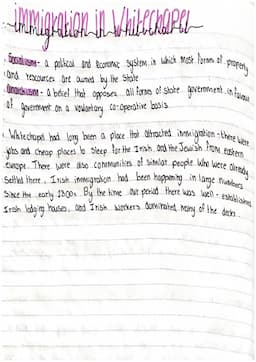 immigration in Whitechapel
Socialism - a political and economic system in which most forms of property
and resources are owned by the State
Anarchism - a belief that opposes all forms of state government in favour
of government on a voluntary co-operative basis.
Whitechapel had long been a place that attracted immigration - there were
jobs and cheap places to sleep for the Irish and the Jewish from eastern
europe. There were also communities of similar people who were already
settled there. Irish immigration had been happening in large numbers
since the early 1800s. By the time our period there was well - established
Irish lodging houses, and Irish workers dominated many of the docks.